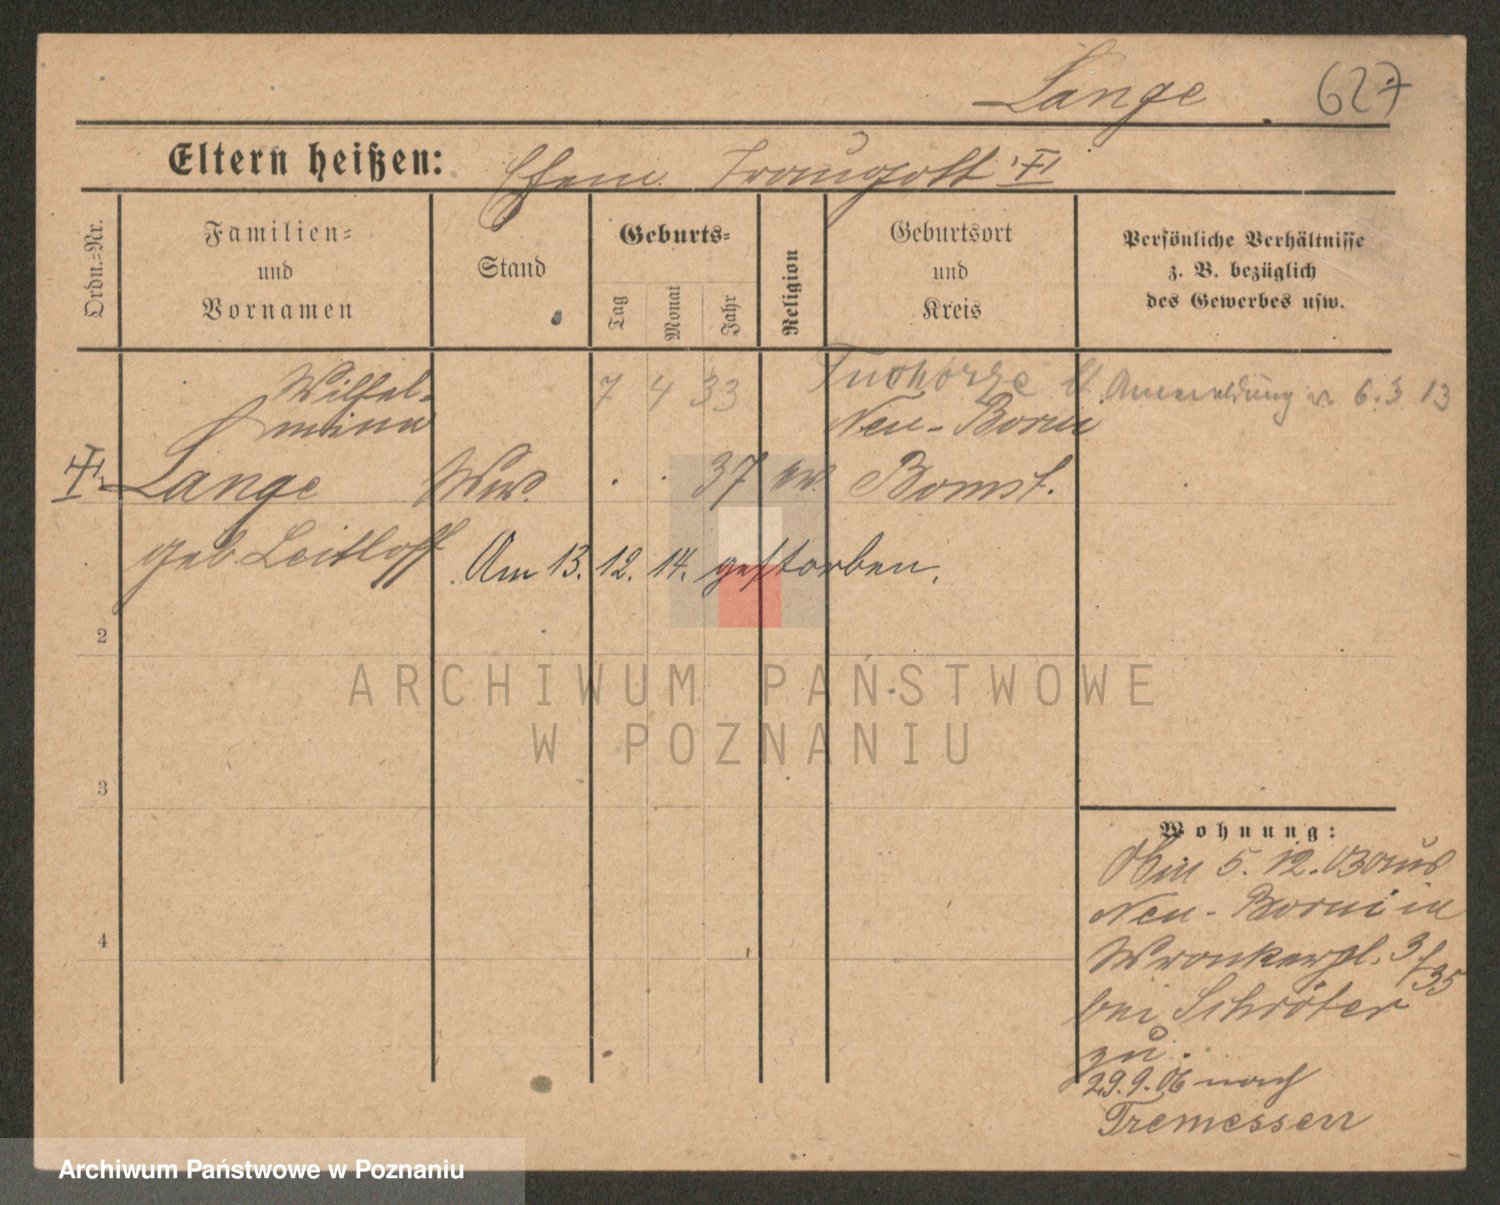 Lange
627
Eltern heißen: Ehem. Traugott
Ordn.-Nr.
Familien-
und
Vornamen
Stand
Geburts-
Tag
Monat
Jahr
Religion
Geburtsort
und
Kreis
Persönliche Verhältnisse
z. B. bezüglich
des Gewerbes usw.
Wilhel-
mine
7 4 33
Tuchorze lt. Anmeldung v 6.3 13
Neu-Borui
Lange Ww. . . 37 ev. Bomst.
geb. Leitloff
Am 13. 12. 14. gestorben.
2
3
4
Wohnung:
5. 12. 03 aus
Neu-Borui in
Wronkerpl. 3/35
bei Schröter
zu.
29.9.06 nach
Tremessen
ARCHIWUM PAŃSTWOWE
W POZNANIU
Archiwum Państwowe w Poznaniu